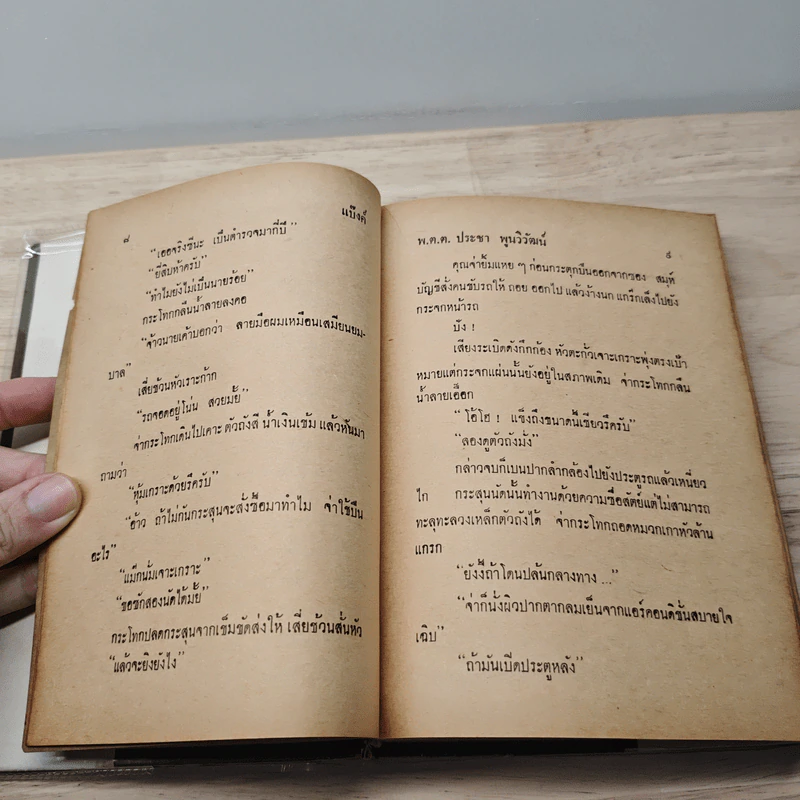 ๘
แบ๊งค์
“เออจริงซีนะ เป็นตำรวจมากี่ปี”
“ยี่สิบห้าครับ”
“ทำไมยังไม่เป็นนายร้อย”
กระโทกกลืนน้ำลายลงคอ
“จ้าวนายเค้าบอกว่า ลายมือผมเหมือนเสมียนยม-
บาล”
เสี่ยช้วนหัวเราะก๊าก
“รถจอดอยู่โน่น สวยมั้ย”
จ่ากระโทกเดินไปเคาะ ตัวถังสี น้ำเงินเข้ม แล้วหันมา
ถามว่า
“หุ้มเกราะด้วยรึครับ”
“อ้าว ถ้าไม่กันกระสุนจะสั่งซื้อมาทำไม จ่าใช้ปืน
อะไร”
“แม๊กนั่มเจาะเกราะ”
“ขอซักสองนัดได้มั้ย”
กระโทกปลดกระสุนจากเข็มขัดส่งให้ เสี่ยช้วนสั่นหัว
“แล้วจะยิงยังไง”
พ.ต.ต. ประชา พูนวิวัฒน์
๙
คุณจ่ายิ้มแหย ๆ ก่อนกระตุกปืนออกจากซอง สมุห์
บัญชีสั่งคนขับรถให้ ถอย ออกไป แล้วง้างนก แกร๊กเล็งไปยัง
กระจกหน้ารถ
ปัง !
เสียงระเบิดดังกึกก้อง หัวตะกั่วเจาะเกราะพุ่งตรงเป้า
หมายแต่กระจกแผ่นนั้นยังอยู่ในสภาพเดิม จ่ากระโทกกลืน
น้ำลายเอื๊อก
“โอ้โฮ ! แข็งถึงขนาดนี้เชียวรึครับ”
“ลองดูตัวถังมั่ง”
กล่าวจบก็เบนปากลำกล้องไปยังประตูรถแล้วเหนี่ยว
ไก กระสุนนัดนั้นทำงานด้วยความซื่อสัตย์แต่ไม่สามารถ
ทะลุทะลวงเหล็กตัวถังได้ จ่ากระโทกถอดหมวกเกาหัวล้าน
แกรก
“ยังงี้ถ้าโดนปล้นกลางทาง ...”
“จ่าก็นั่งผิวปากตากลมเย็นจากแอร์คอนดิชั่นสบายใจ
เฉิบ”
“ถ้ามันเปิดประตูหลัง”